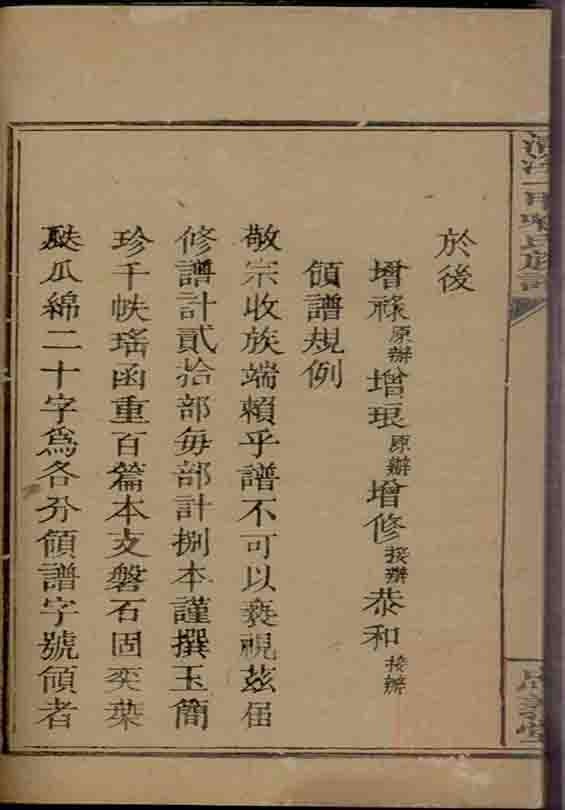 於後
增祿原辦增琅原辦增修接辦恭和接辦
領譜規例
敬宗收族端賴乎譜不可以褻視茲届
修譜計貳拾部每部計捌本謹撰玉簡
珍千帙瑤函重百篇本支磐石固奕葉
瓞瓜綿二十字為各分領譜字號領者